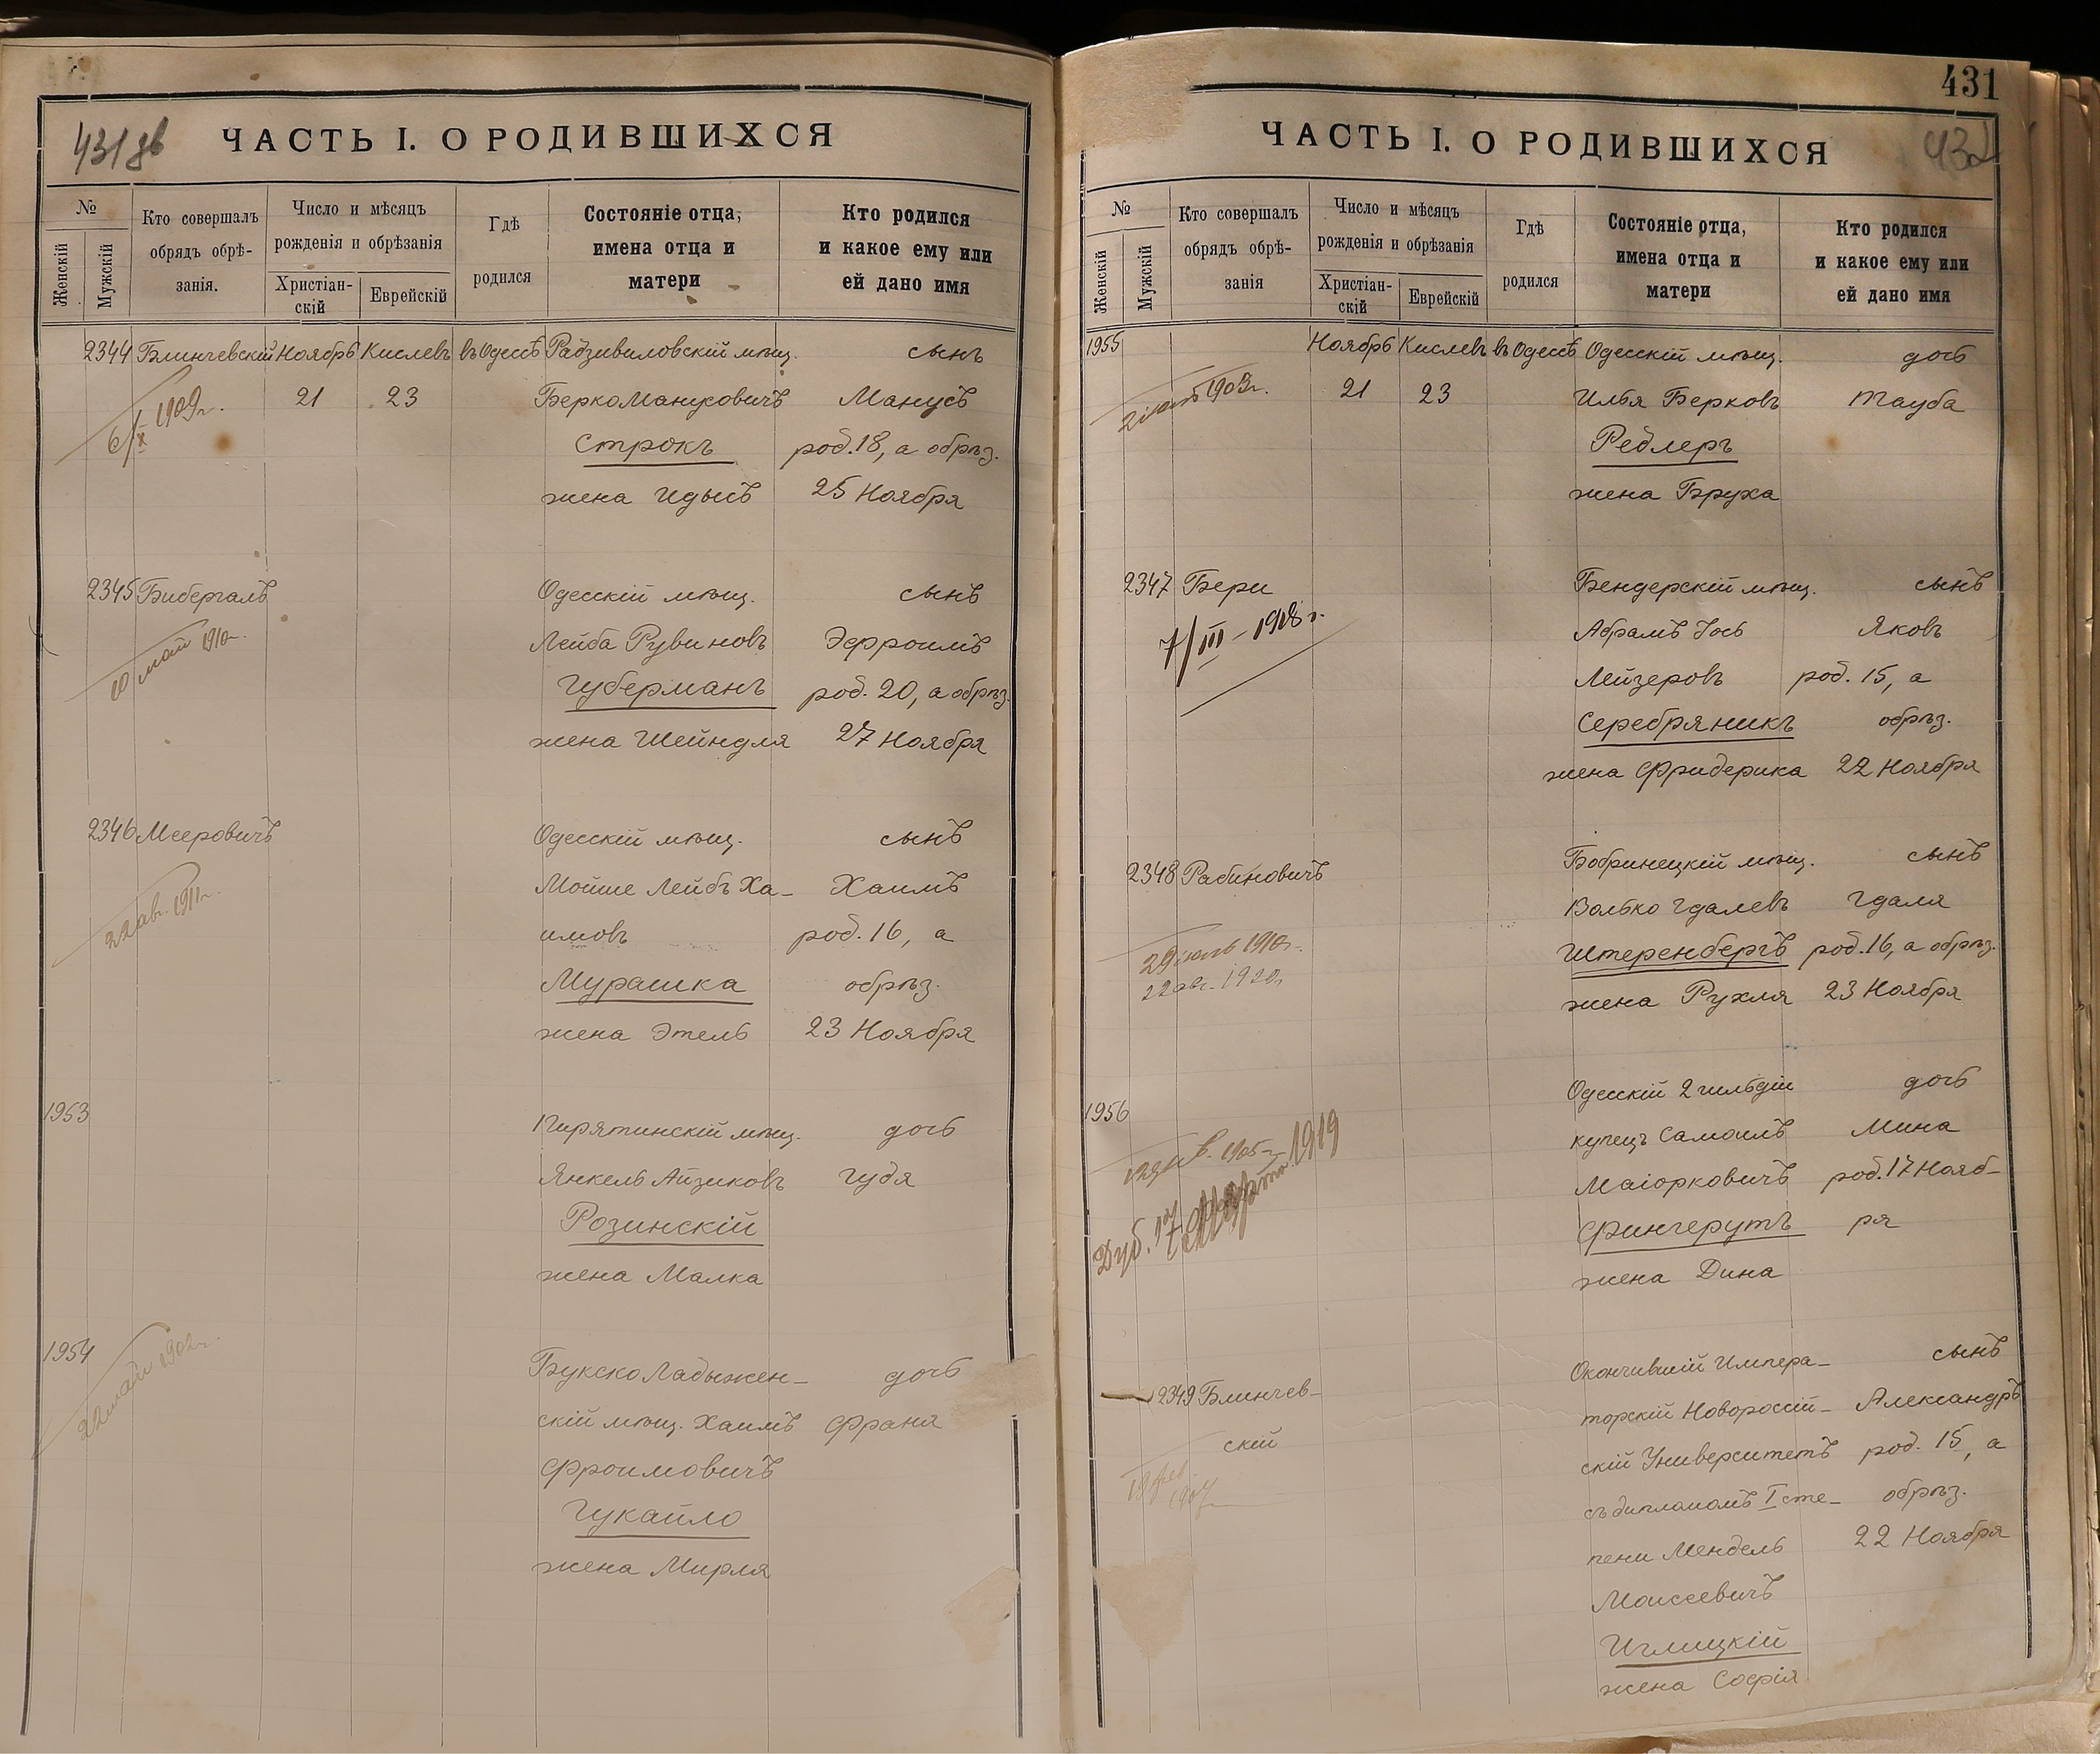 431 об
ЧАСТЬ I. О РОДИВШИХСЯ
№
Женскій
Мужскій
Кто совершалъ
обрядъ обрѣ-
занія.
Число и мѣсяцъ
рожденія и обрѣзанія
Христіан-
скій
Еврейскій
Гдѣ
родился
Состояніе отца,
имена отца и
матери
Кто родился
и какое ему или
ей дано имя
2344 Блинчевскій Ноябрь Кислевъ въ Одессѣ Радзивиловскій мѣщ. сынъ
21 23 Берко Манусовичъ Манусъ
6/X 1909 г.
Строкъ род. 18, а обрѣз.
жена Идысъ 25 Ноября
2345 Бибергалъ Одесскій мѣщ. сынъ
10 май 1910 г.
Лейба Рувиновъ Эфроимъ
Губерманъ род. 20, а обрѣз.
жена Шейндля 27 Ноября
2346 Мееровичъ Одесскій мѣщ. сынъ
22 авг. 1911 г.
Мойше Лейбъ Ха- Хаимъ
имовъ род. 16, а
Мурашка обрѣз.
жена Этель 23 Ноября
1953 Пирятинскій мѣщ. дочь
Янкель Айзиковъ Гудя
Розинскій
жена Малка
1954 Букско Ладыжен- дочь
скій мѣщ. Хаимъ Франя
Фроимовичъ
Гукайло
жена Мирля
431
432
ЧАСТЬ I. О РОДИВШИХСЯ
№
Женскій
Мужскій
Кто совершалъ
обрядъ обрѣ-
занія
Число и мѣсяцъ
рожденія и обрѣзанія
Христіан-
скій
Еврейскій
Гдѣ
родился
Состояніе отца,
имена отца и
матери
Кто родился
и какое ему или
ей дано имя
1955 Ноябрь Кислевъ въ Одессѣ Одесскій мѣщ. дочь
21 23 Илья Берковъ Тауба
Редлеръ
жена Бруха
2347 Бери Бендерскій мѣщ. сынъ
7/III-1908 г.
Абрамъ Іось Яковъ
Лейзеровъ род. 15, а
Серебряникъ обрѣз.
жена Фридерика 22 Ноября
2348 Рабиновичъ Бобринецкій мѣщ. сынъ
Волько Гдалевъ Гдаля
Штеренбергъ род. 16, а обрѣз.
22 авг. 1920 г.
жена Рухля 23 Ноября
1956 Одесскій 2 гильдіи дочь
купецъ Самоилъ Мина
Маіорковичъ род. 17 Нояб-
Дуб. 17 марта 1919
Фингерутъ ря
жена Дина
2349 Блинчев- Окончившій Импера- сынъ
скій
торскій Новороссій- Александръ
скій Университетъ род. 15, а
съ дипломомъ I сте- обрѣз.
пени Мендель 22 Ноября
Моисеевичъ
Иглицкій
жена Софія